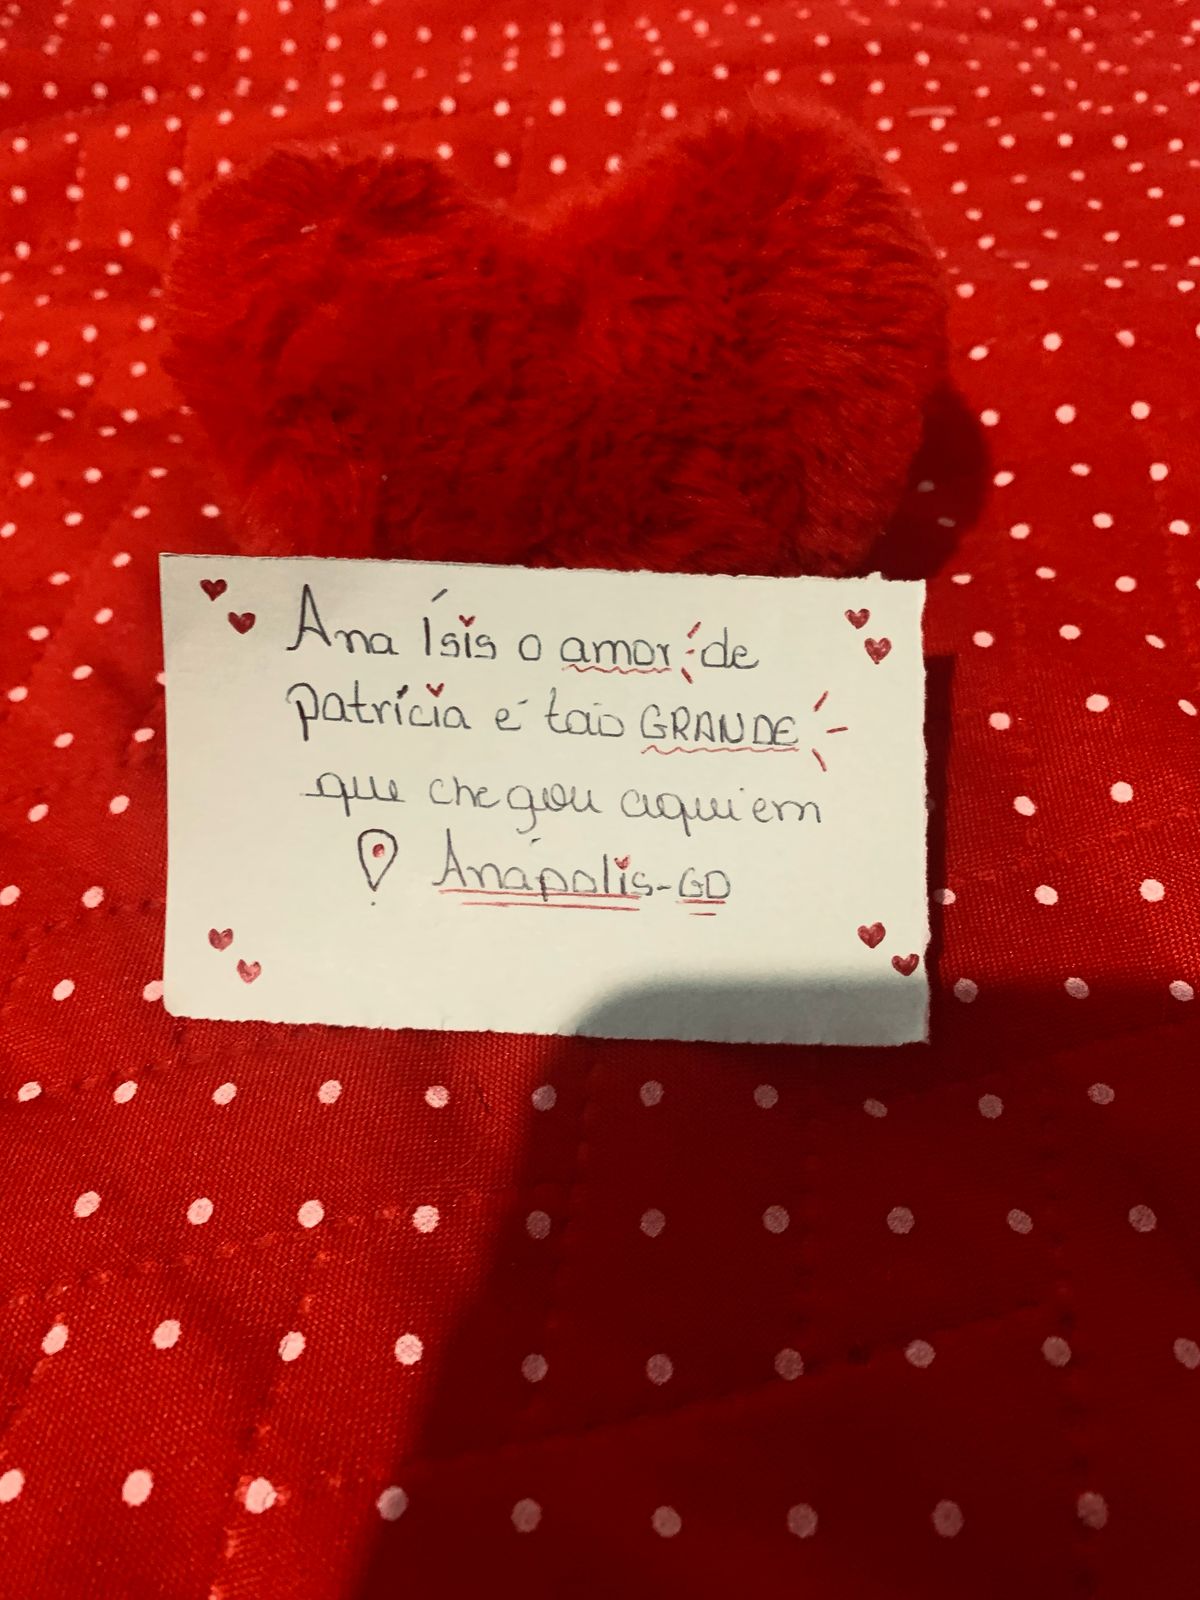 Ana Ísis o amor de
patrícia é tão GRANDE
que chegou aqui em
Anápolis-GO